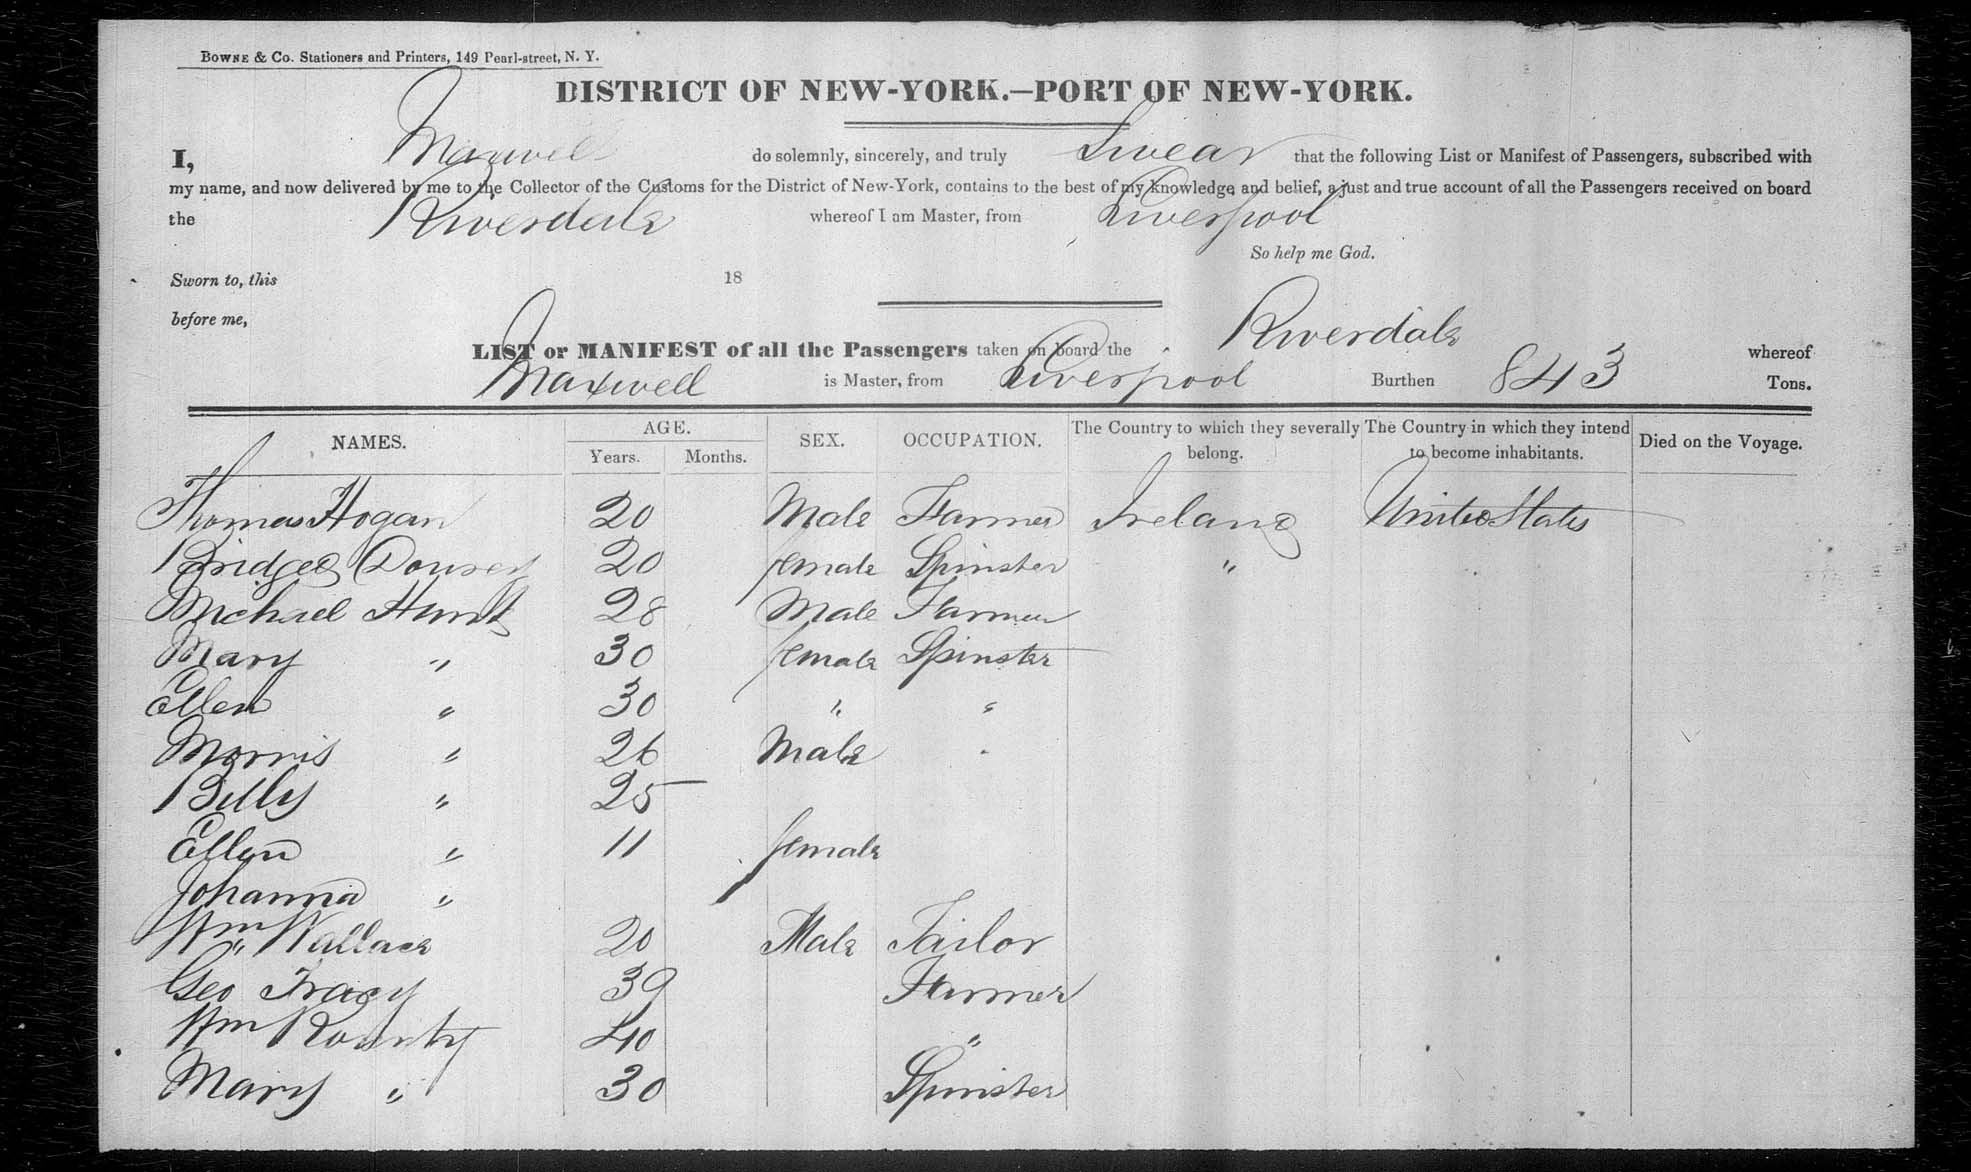 BOWNE & Co. Stationers and Printers, 149 Pearl-street, N. Y.
DISTRICT OF NEW-YORK.—PORT OF NEW-YORK.
I, Maxwell do solemnly, sincerely, and truly Swear that the following List or Manifest of Passengers, subscribed with
my name, and now delivered by me to the Collector of the Customs for the District of New-York, contains to the best of my knowledge and belief, a just and true account of all the Passengers received on board
the Riverdale whereof I am Master, from Liverpool
So help me God.
Sworn to, this 18
before me,
LIST or MANIFEST of all the Passengers taken on board the Riverdale whereof
Maxwell is Master, from Liverpool Burthen 843 Tons.
NAMES. AGE. SEX. OCCUPATION. The Country to which they severally The Country in which they intend Died on the Voyage.
Years. Months. belong. to become inhabitants.
Thomas Hogan 20 Male Farmer Ireland United States
Bridget 20 female Spinster "
Michael Hunt 28 Male Farmer
Mary " 30 female Spinster
Ellen " 30 " "
Morris " 26 Male "
Billy " 25
Ellen " 11 female
Johanna "
Wm Wallace 20 Male Tailor
Geo Tracy 39 Farmer
Wm 40 "
Mary " 30 Spinster